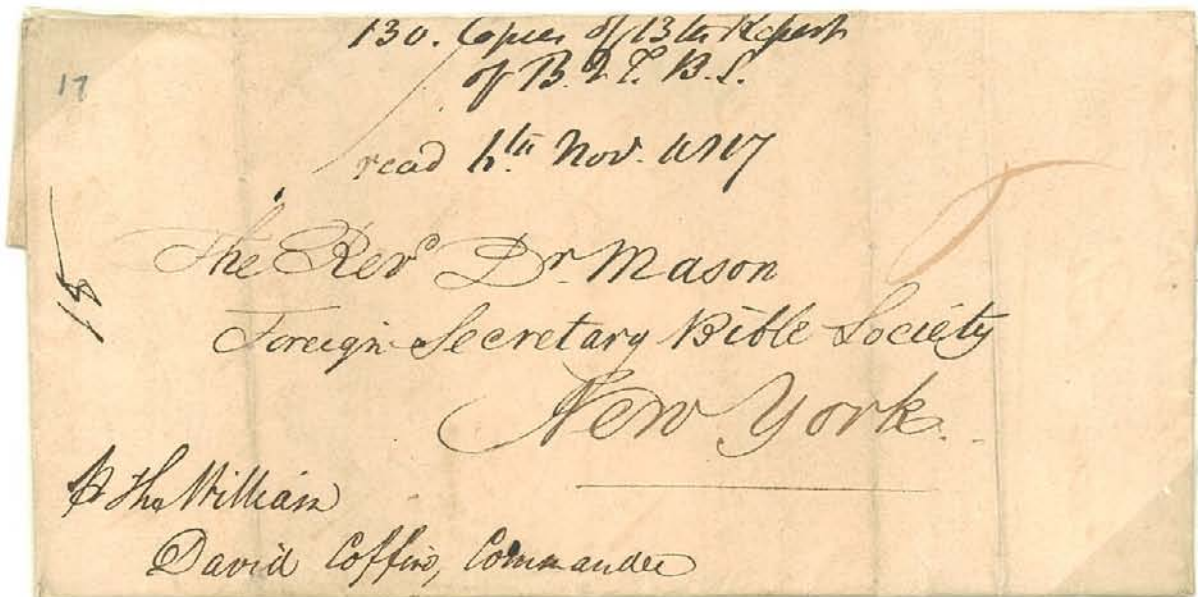 130. Copies of 13th Report
of B. & F. B. S.
17
read Nov. 1817
18
The Revd Dr. Mason
Foreign Secretary Bible Society
New York.
The William
David Coffin, Commander